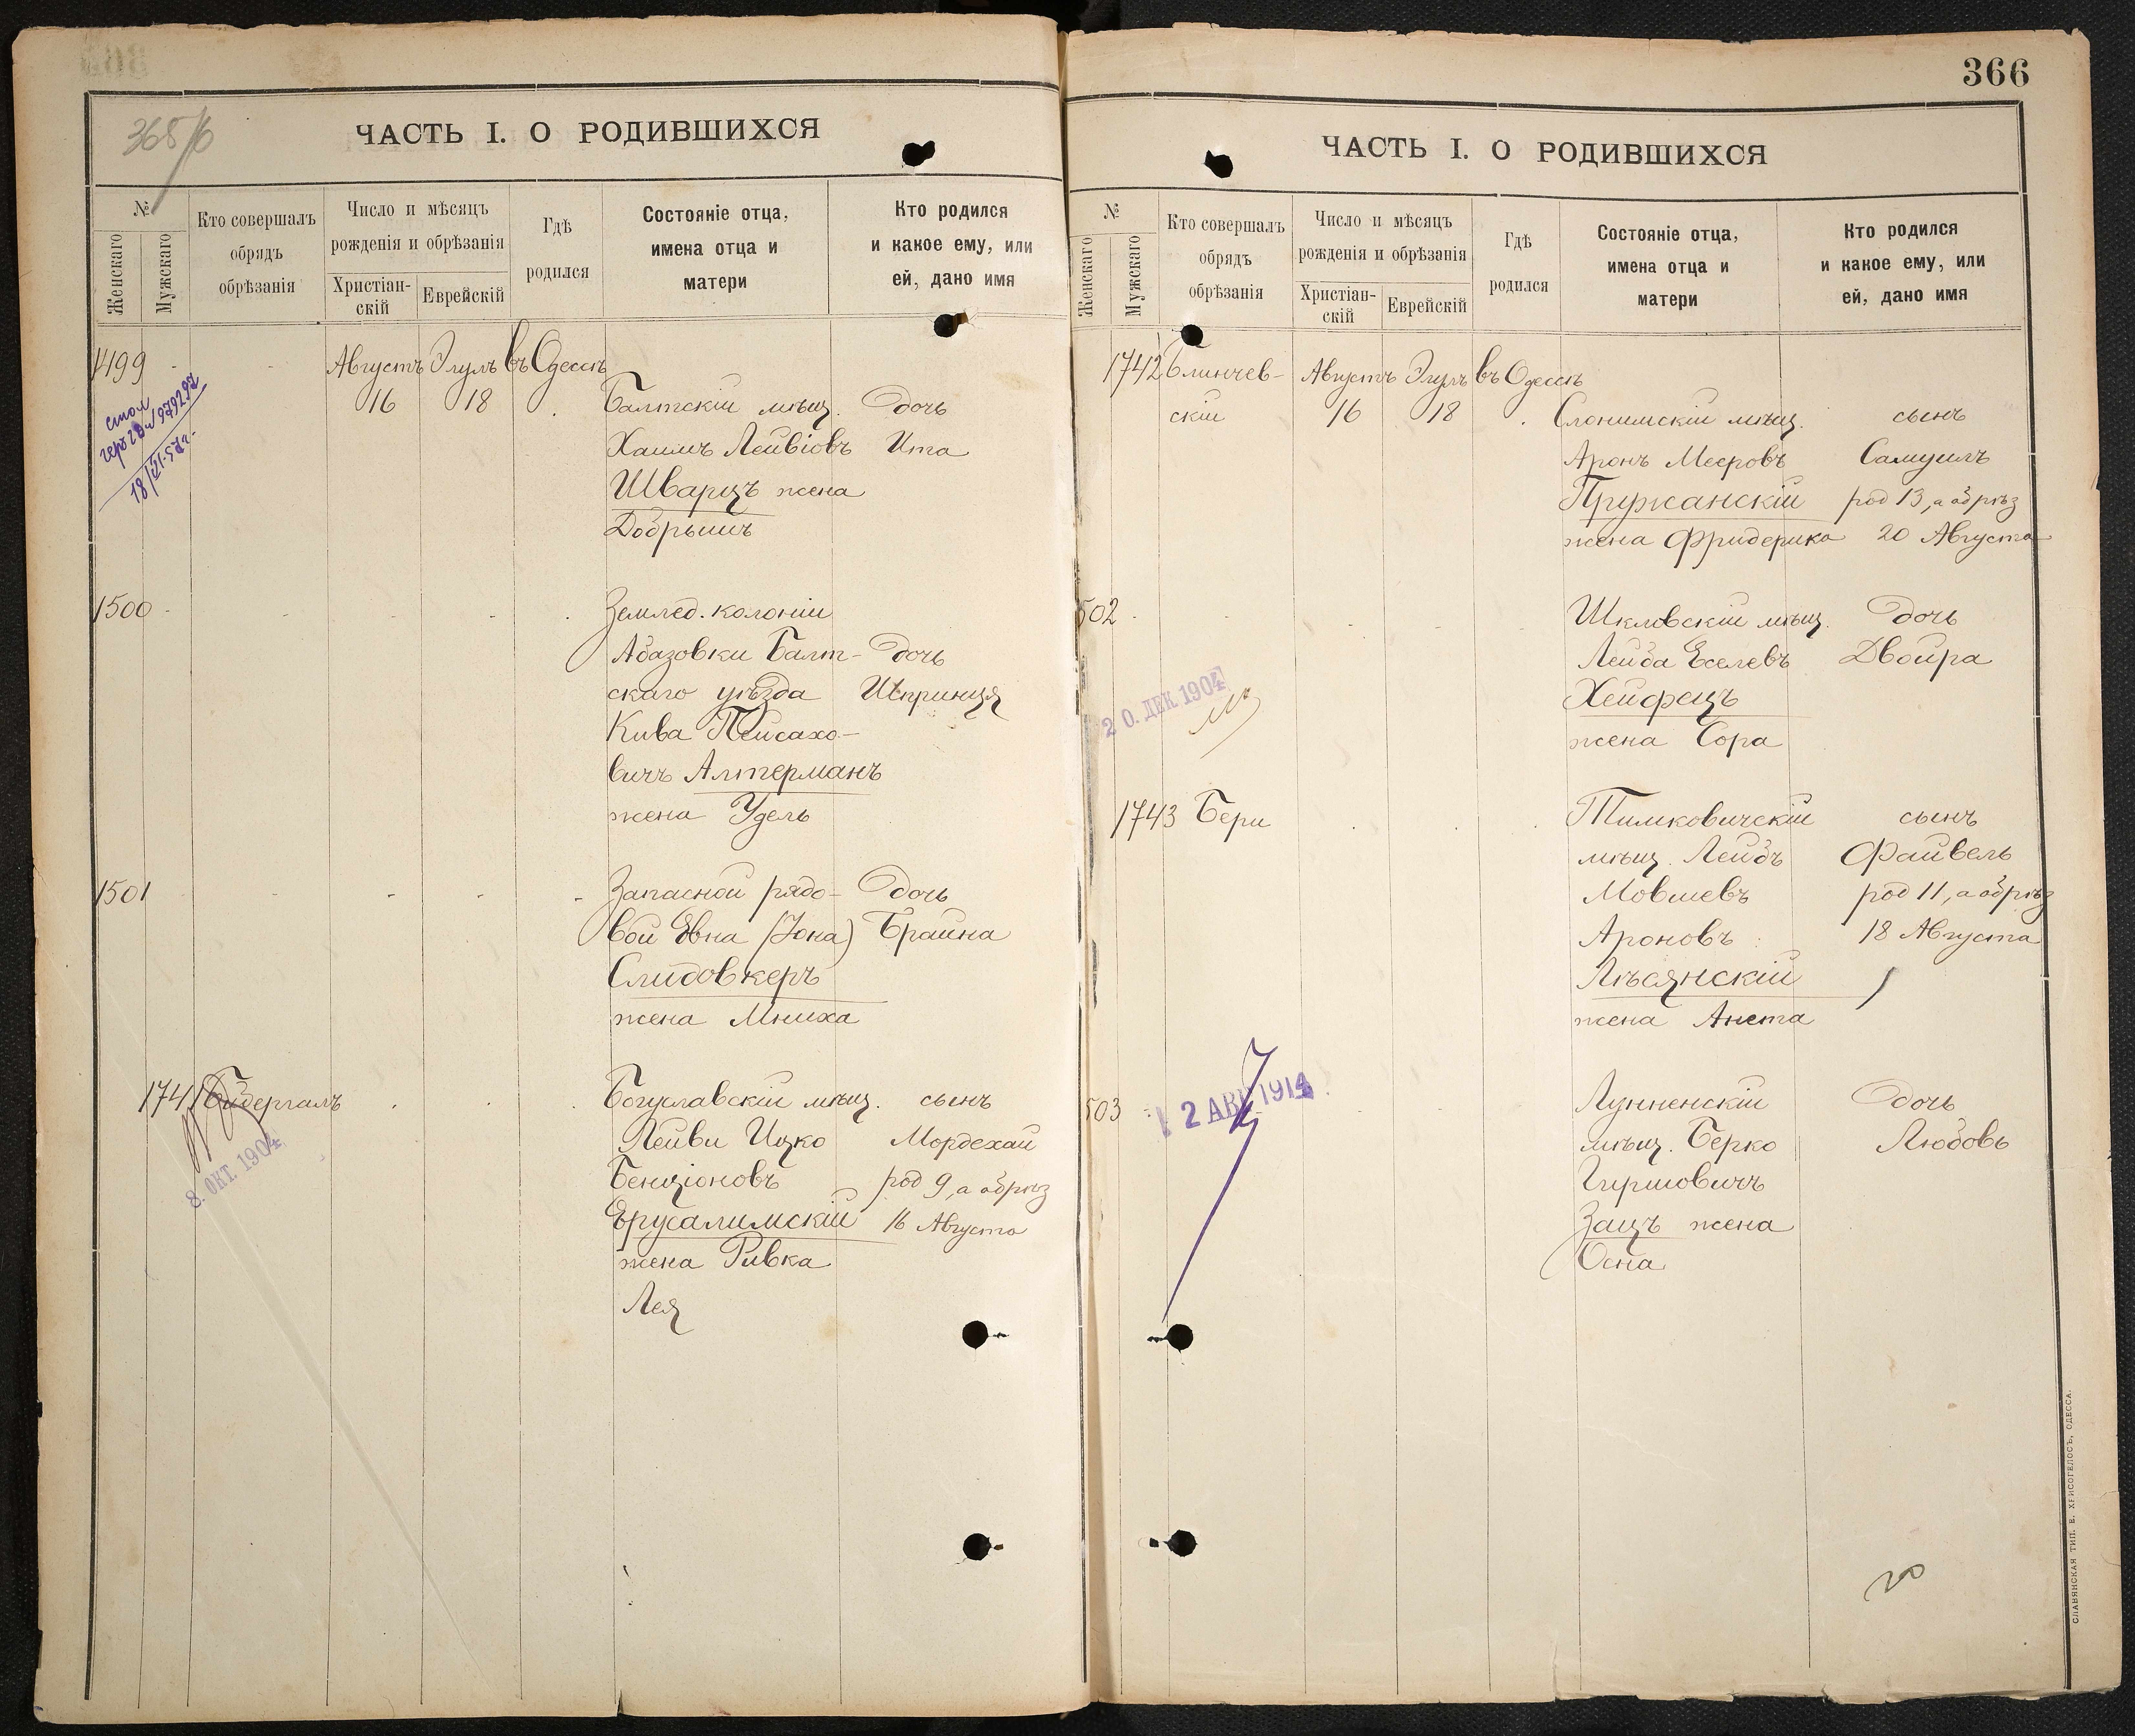 365/6
ЧАСТЬ I. О РОДИВШИХСЯ
№
Женскаго
Мужскаго
Кто совершалъ
обрядъ
обрѣзанія
Число и мѣсяцъ
рожденія и обрѣзанія
Христіан-
скій
Еврейскій
Гдѣ
родился
Состояніе отца,
имена отца и
матери
Кто родился
и какое ему, или
ей, дано имя
1499 Августъ Элулъ въ Одессѣ
16 18 Балтскій мѣщ. дочь
Хаимъ Лейвіовъ Ита
Шварцъ жена
Добрышъ
18/VI-57г.
1500 Землед. колоніи
Абазовки Балт- дочь
скаго уѣзда Шпринця
Кива Пейсахо-
вичъ Алтерманъ
жена Удель
1501 Запасной рядо- дочь
вой Евна (Іона) Брайна
Слидовкеръ
жена Мниха
1741 Бидергалъ Богуславскій мѣщ. сынъ
Лейви Ицко Мордехай
Бенціоновъ род 9, а обрѣз
Ерусалимскій 16 Августа
жена Ривка
Лея
8. ОКТ. 1904
366
ЧАСТЬ I. О РОДИВШИХСЯ
№
Женскаго
Мужскаго
Кто совершалъ
обрядъ
обрѣзанія
Число и мѣсяцъ
рожденія и обрѣзанія
Христіан-
скій
Еврейскій
Гдѣ
родился
Состояніе отца,
имена отца и
матери
Кто родился
и какое ему, или
ей, дано имя
1742 Блинчев- Августъ Элулъ въ Одессѣ
скій 16 18 Слонимскій мѣщ. сынъ
Аронъ Мееровъ Самуилъ
Пружанскій род 13, а обрѣз
жена Фридерика 20 Августа
502 Шкловскій мѣщ. дочь
Лейба Еселевъ Двойра
Хейфецъ
жена Сора
20. ДЕК 1904
1743 Бери Тимковичскій сынъ
мѣщ. Лейбъ Файвель
Мовшевъ род 11, а обрѣз
Ароновъ 18 Августа
Лѣсянскій
жена Анета
503 Лунненскій дочь
мѣщ. Берко Любовь
Гиршовичъ
Зацъ жена
Осна
12 АВГ 1914
СЛАВЯНСКАЯ ТИП. Е. ХРИСОГЕЛОСЪ, ОДЕССА.